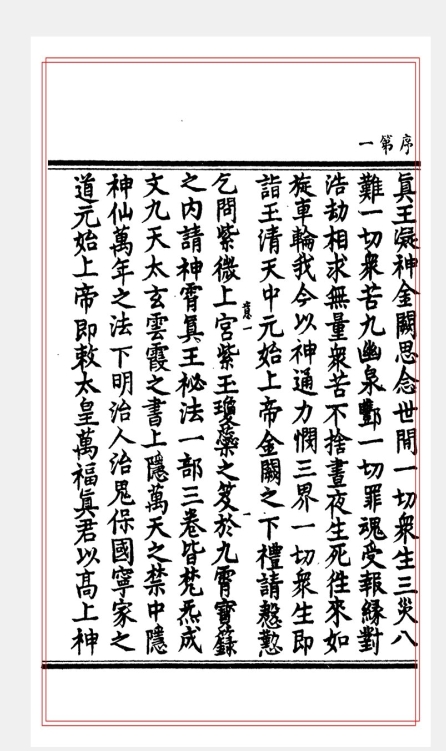 序第一
真王凝神金闕思念世間一切衆生三災八
難一切衆苦九幽泉酆一切罪魂受報緣對
浩劫相求無量衆苦不捨晝夜生死徃來如
旋車輪我今以神通力憫三界一切衆生即
詣玉清天中元始上帝金闕之下禮請懃懃
乞問紫微上宮紫玉瓊蘂之笈於九霄寶籙
之内請神霄真王祕法一部三卷皆梵炁成
文九天太玄雲霞之書上隱萬天之禁中隱
神仙萬年之法下明治人治鬼保國寧家之
道元始上帝即敕太皇萬福真君以高上神